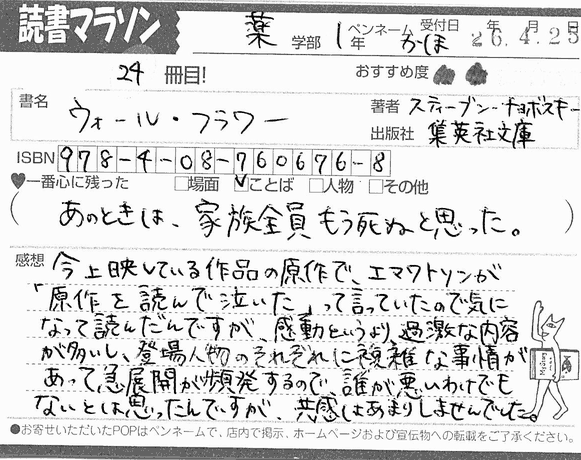 読書マラソン
薬 学部 1年 ペンネーム かほ 受付日 年 月 日 26.4.25
24 冊目! おすすめ度
書名 ウォール・フラワー 著者 スティーブン・チョボスキー
出版社 集英社文庫
ISBN 978-4-08-760676-8
♥一番心に残った □場面 ☑ことば □人物 □その他
(あのときは、家族全員もう死ぬと思った。)
感想 今上映している作品の原作で、エマワトソンが
「原作を読んで泣いた」って言っていたので気に
なって読んだんですが、感動というより過激な内容
が多いし、登場人物のそれぞれに複雑な事情が
あって急展開が頻発するので、誰が悪いわけでも
ないとは思ったんですが、共感はあまりしませんでした。
●お寄せいただいたPOPはペンネームで、店内で掲示、ホームページおよび宣伝物への転載をご了承ください。